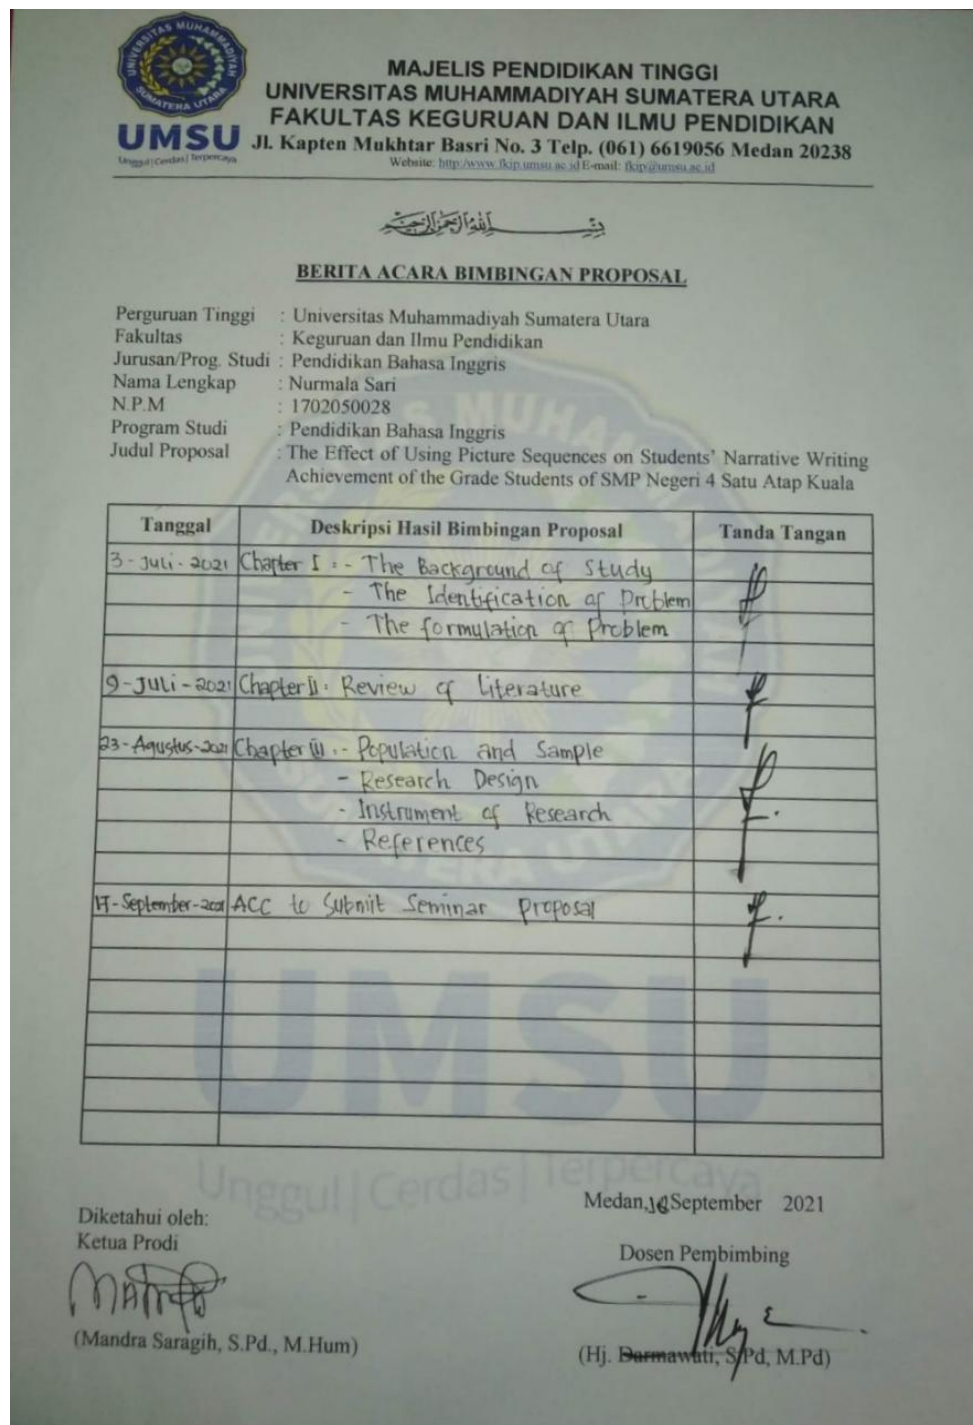 UNIVERSITAS MUHAMMADIYAH
SUMATERA UTARA
UMSU
Unggul | Cerdas | Terpercaya
MAJELIS PENDIDIKAN TINGGI
UNIVERSITAS MUHAMMADIYAH SUMATERA UTARA
FAKULTAS KEGURUAN DAN ILMU PENDIDIKAN
Jl. Kapten Mukhtar Basri No. 3 Telp. (061) 6619056 Medan 20238
Website: http://www.fkip.umsu.ac.id E-mail: fkip@umsu.ac.id
بسم الله الرحمن الرحيم
BERITA ACARA BIMBINGAN PROPOSAL
Perguruan Tinggi : Universitas Muhammadiyah Sumatera Utara
Fakultas : Keguruan dan Ilmu Pendidikan
Jurusan/Prog. Studi : Pendidikan Bahasa Inggris
Nama Lengkap : Nurmala Sari
N.P.M : 1702050028
Program Studi : Pendidikan Bahasa Inggris
Judul Proposal : The Effect of Using Picture Sequences on Students' Narrative Writing
Achievement of the Grade Students of SMP Negeri 4 Satu Atap Kuala
Tanggal Deskripsi Hasil Bimbingan Proposal Tanda Tangan
3-Juli-2021 Chapter I : - The Background of Study
- The Identification of Problem
- The formulation of Problem
9-Juli-2021 Chapter II : Review of Literature
23-Agustus-2021 Chapter III : - Population and Sample
- Research Design
- Instrument of Research
- References
17-September-2021 ACC to Submit Seminar Proposal
UMSU
Unggul | Cerdas | Terpercaya
Medan, September 2021
Diketahui oleh:
Ketua Prodi
Dosen Pembimbing
(Mandra Saragih, S.Pd., M.Hum)
(Hj. Darmawati, S.Pd, M.Pd)